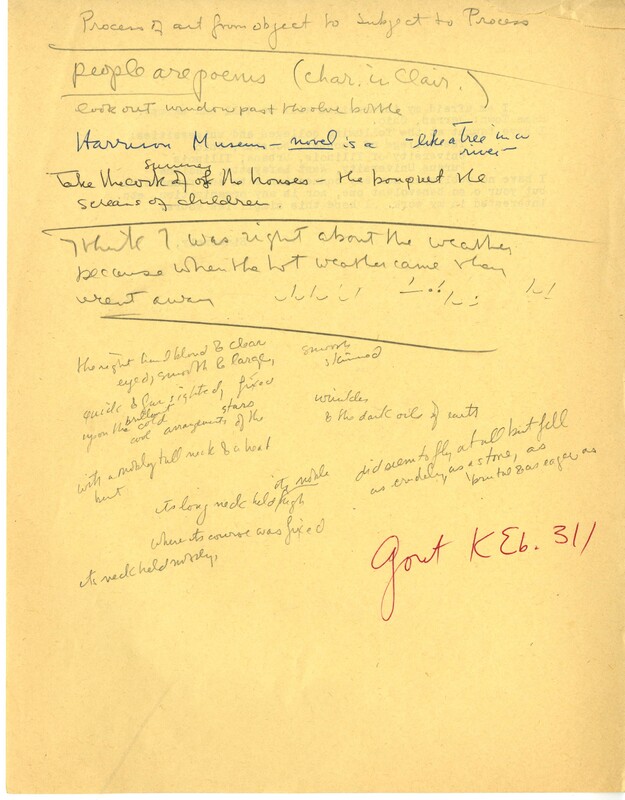 Process of art from object to subject to Process
people are poems (char. in Clair.)
look out window past the olive bottle
Harrison Museum - novel is a - like a tree in a
river
summer
Take the cork of of the houses - the bouquet the
screams of children
I think I was right about the weather
because when the hot weather came they
went away
the right hand blond & clear
smooth
skinned
eyed, smooth & large,
quick & far sighted, fixed
wrinkles
brilliant stars
upon the cold
cool arrangements of the
& the dark oils of earth
with a nobly tall neck & a head
but
did seem to fly at all but fell
as crudely as a stone, as
brutal & as eager as
its noble
its long neck held high
where its course was fixed
its neck held nobly,
K Eb. 311